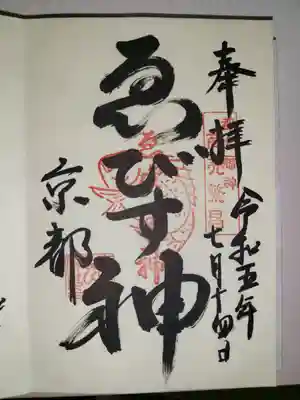 奉拝
令和五年
七月十四日
ゑびす神
京都